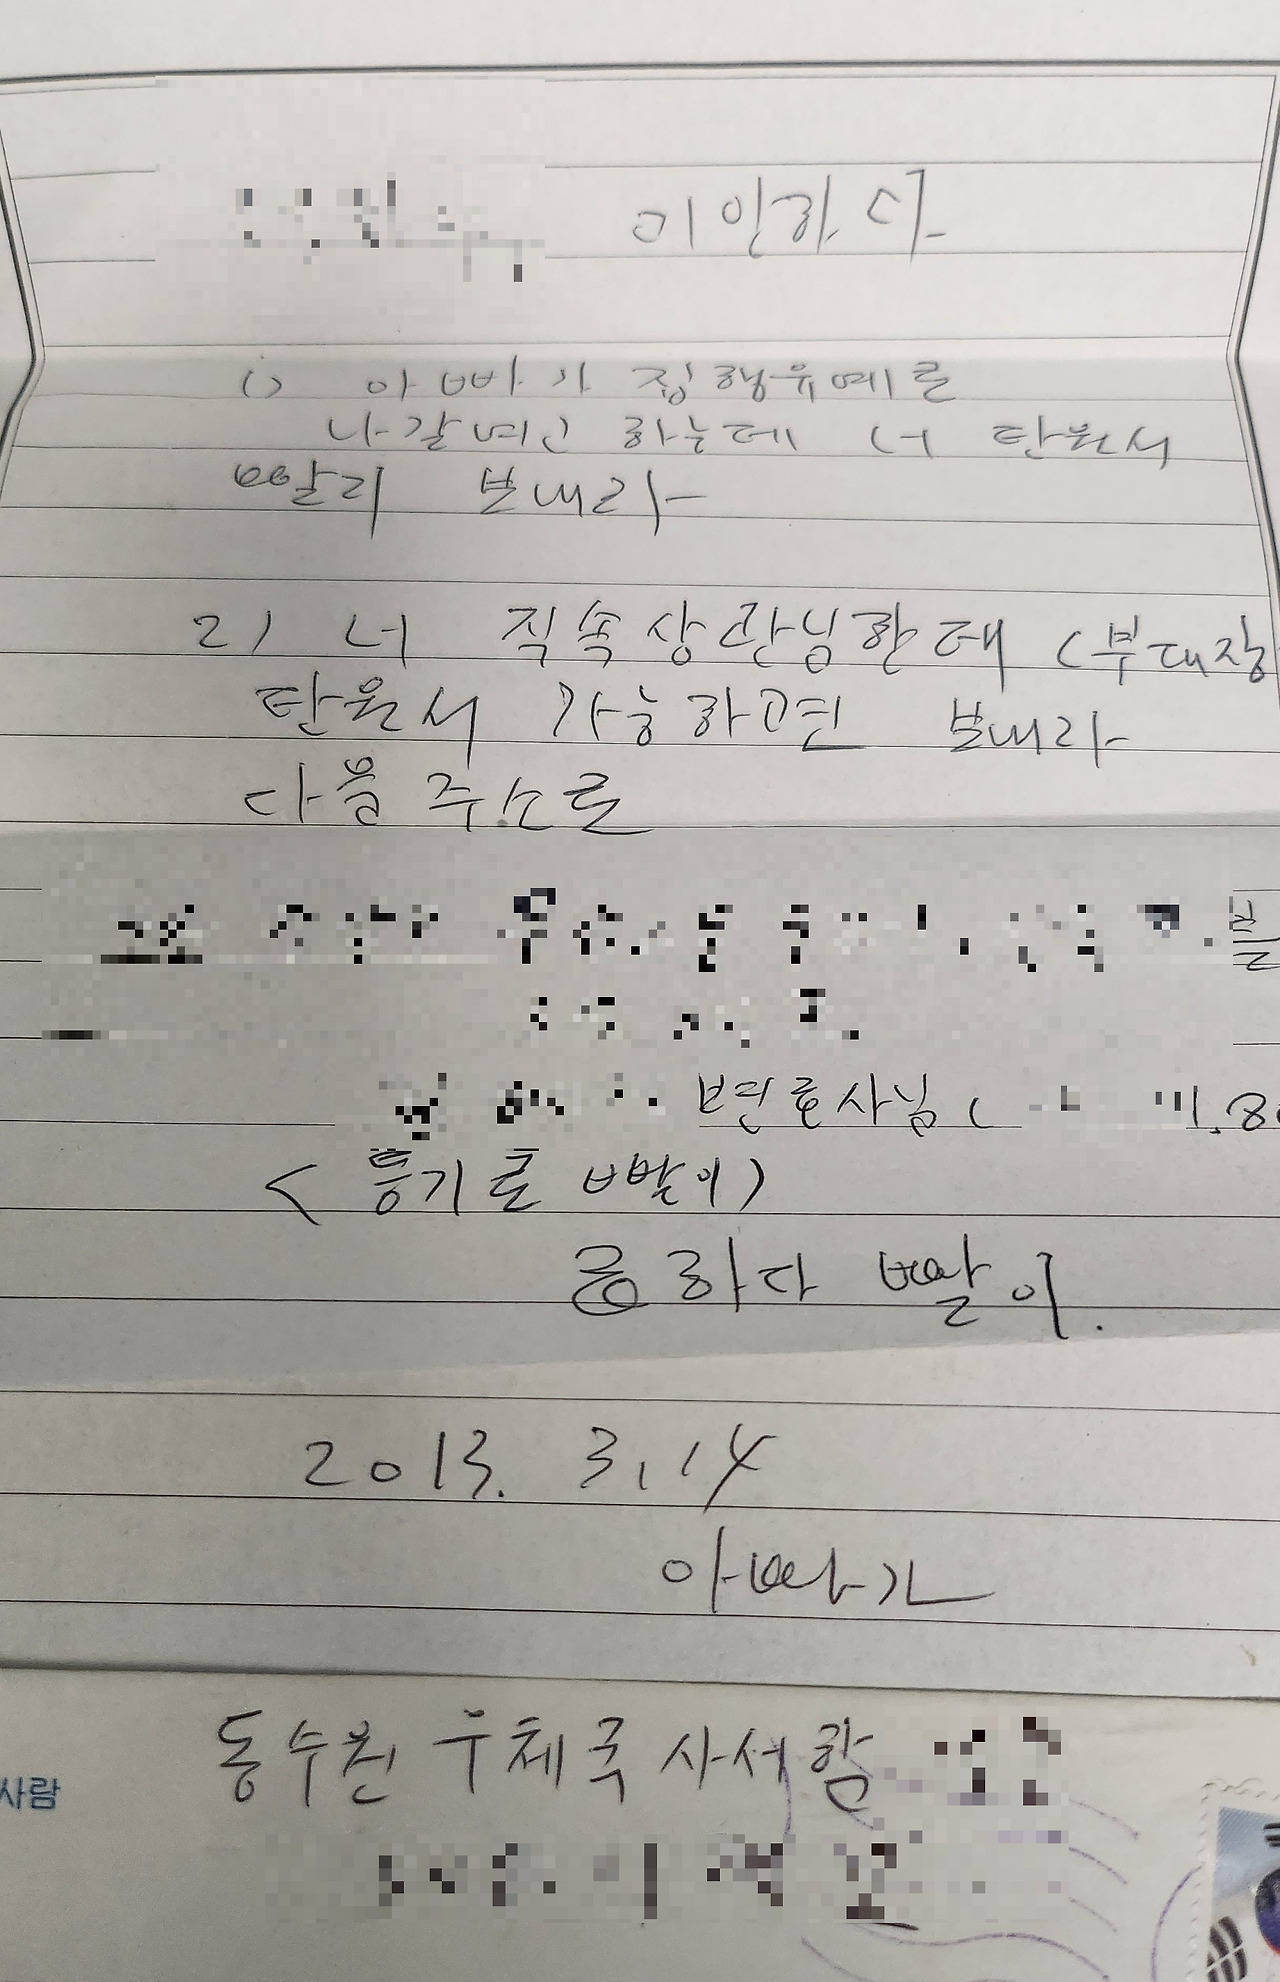 미안하다
1) 아빠가 집행유예로
나갈려고 하는데 너 탄원서
빨리 보내라
2) 너 직속상관님한테 (부대장
탄원서 가능하면 보내라
다음 주소로
변호사님 (
< 등기로 빨리)
급하다 빨리.
2013. 3. 14
아빠가
동수원 우체국 사서함
사람